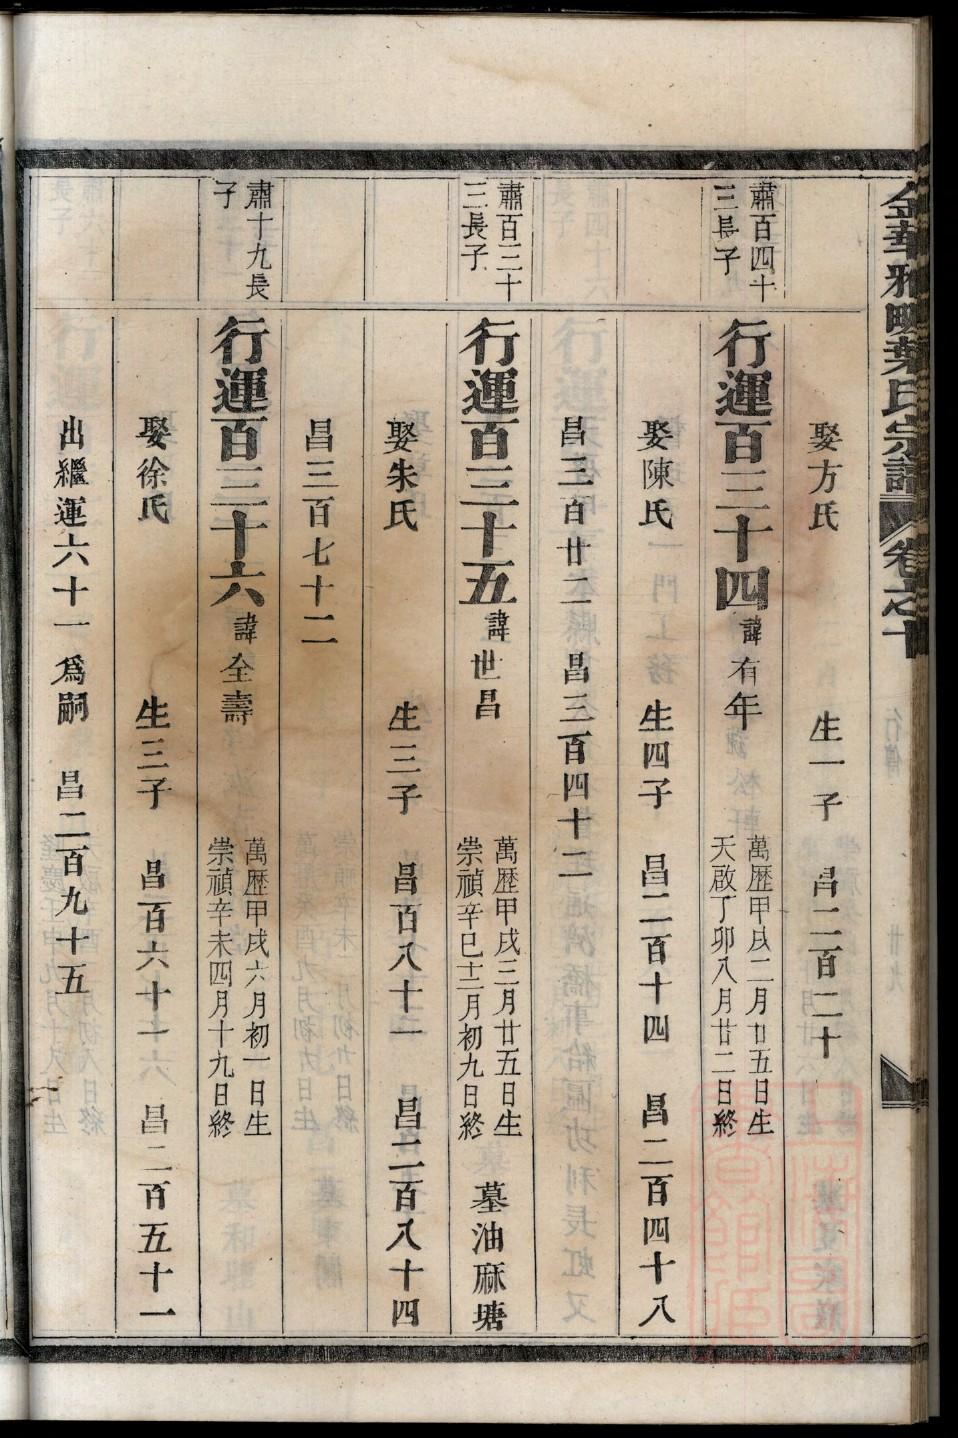 金華雅畈葉氏宗譜 卷之十
娶方氏 生一子 昌二百二十
肅百四十三長子
行運百三十四 諱有年 萬歷甲戌二月廿五日生 天啟丁卯八月廿二日終
娶陳氏 生四子 昌二百十四 昌二百四十八
昌三百廿二 昌三百四十二
肅百三十三長子
行運百三十五 諱世昌 萬歷甲戌三月廿五日生 崇禎辛巳十二月初九日終 墓油麻塘
娶朱氏 生三子 昌百八十二 昌二百八十四
昌三百七十二
肅十九長子
行運百三十六 諱全壽 萬歷甲戌六月初一日生 崇禎辛未四月十九日終
娶徐氏 生三子 昌百六十二 昌二百五十一
出繼運六十一爲嗣 昌二百九十五